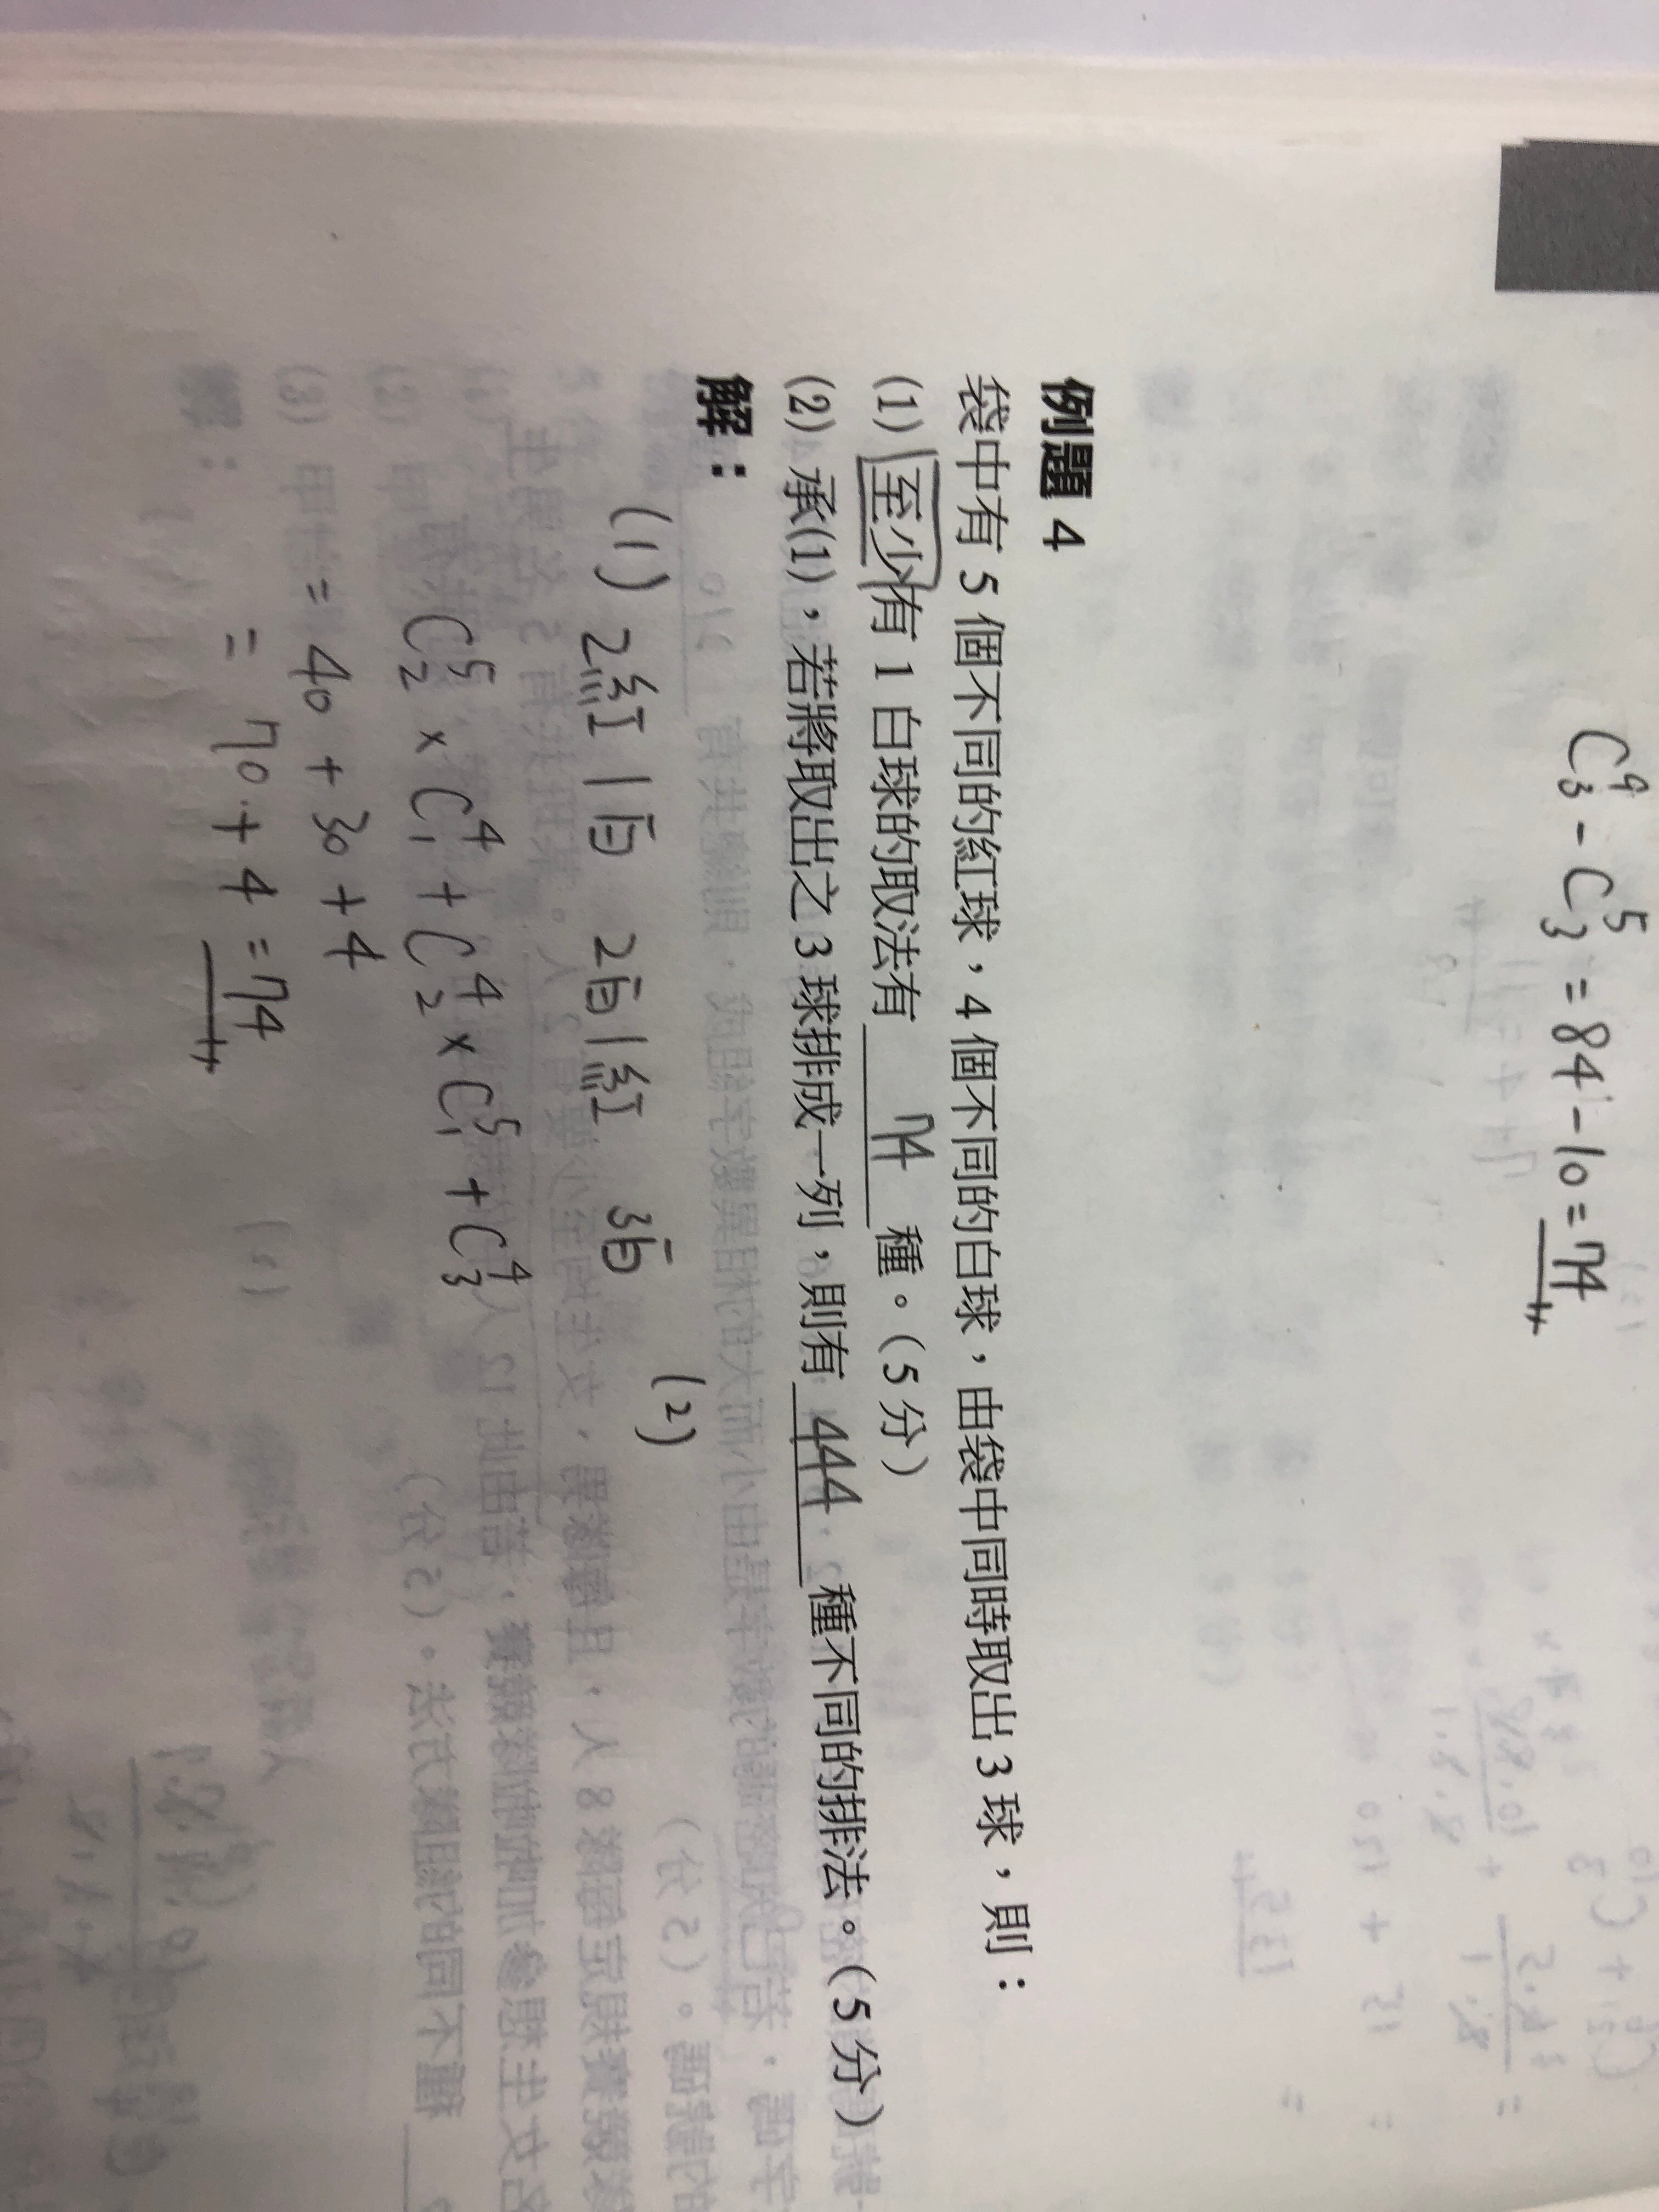 C⁹₃ - C⁵₃ = 84 - 10 = 74
例題 4
袋中有 5 個不同的紅球，4 個不同的白球，由袋中同時取出 3 球，則：
(1) 至少有 1 白球的取法有 74 種。（5 分）
(2) 承(1)，若將取出之 3 球排成一列，則有 444 種不同的排法。（5 分）
解：
(1) 2紅1白 2白1紅 3白 (2)
C⁵₂ × C⁴₁ + C⁴₂ × C⁵₁ + C⁴₃
= 40 + 30 + 4
= 70 + 4 = 74